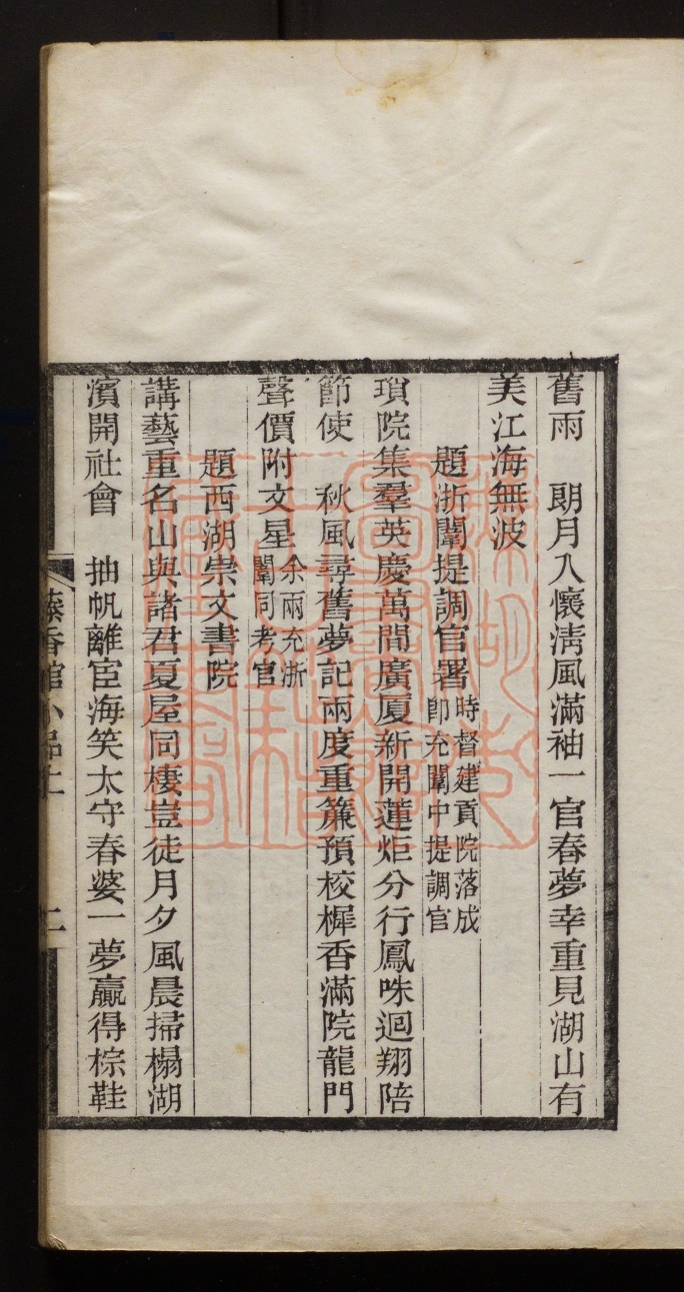 舊雨　朗月入懷清風滿袖一官春夢幸重見湖山有
美江海無波
題浙闈提調官署時督建貢院落成卽充闈中提調官
瑣院集羣英慶萬間廣厦新開蓮炬分行鳳咮迴翔陪
節使　秋風尋舊夢記兩度重簾預校樨香滿院龍門
聲價附文星余兩充浙闈同考官
題西湖崇文書院
講藝重名山與諸君夏屋同棲豈徒月夕風晨掃榻湖
濱開社會　抽帆離宦海笑太守春婆一夢贏得棕鞋
香館小品上
二